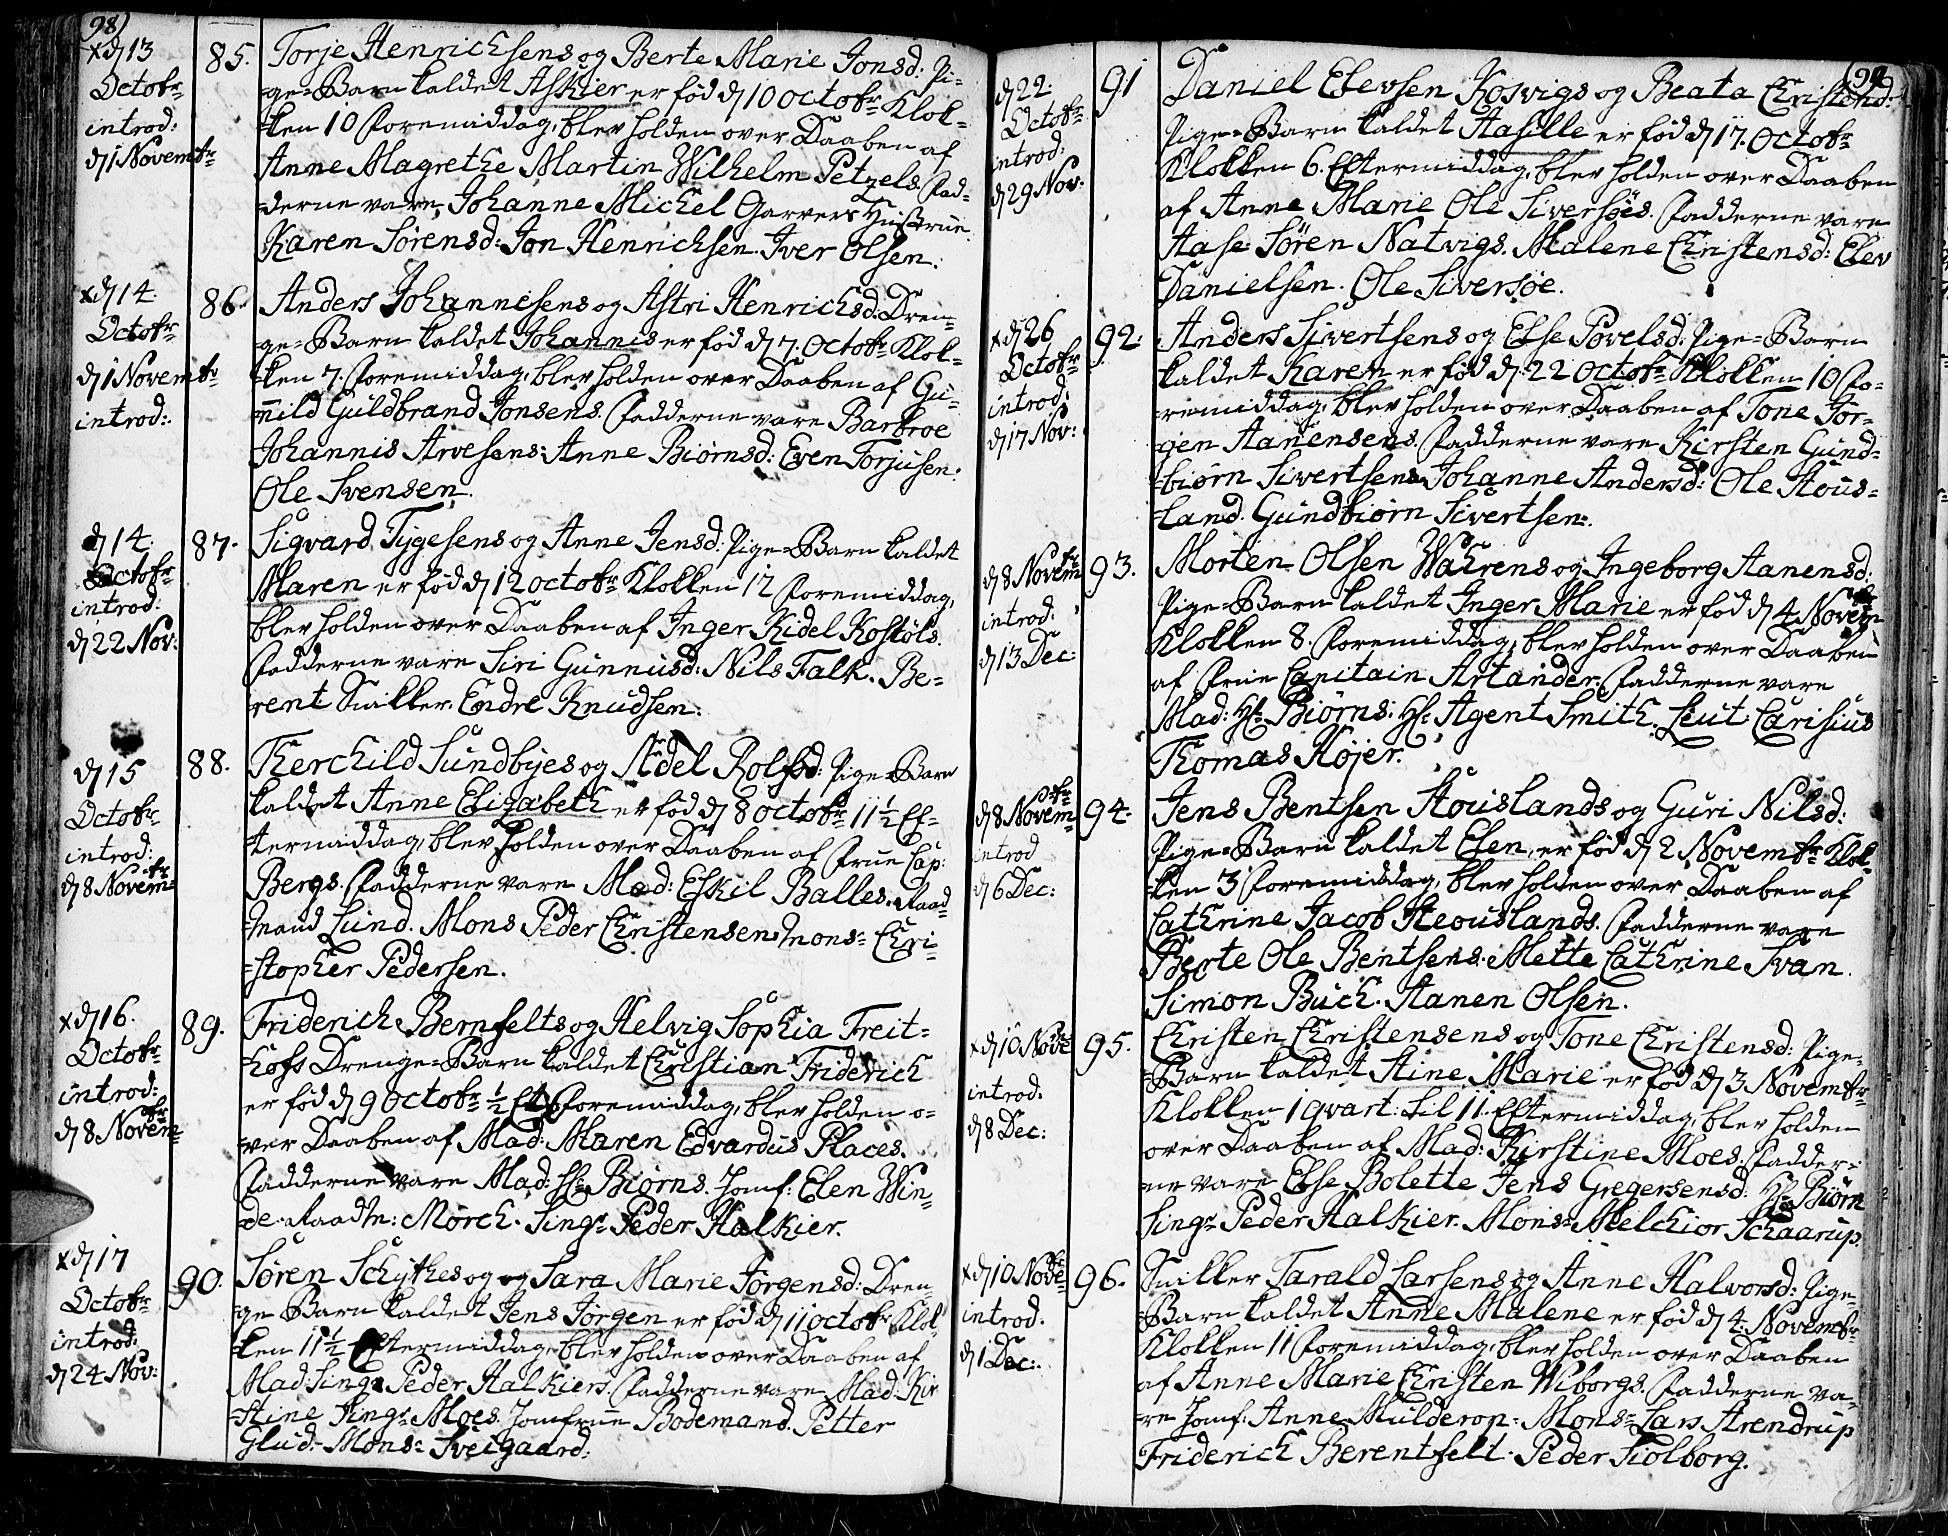 (98)
x d 13
Octobr
introd:
d 1 Novembr
85. Torje Henrichsens og Berte Marie Jonsd: Pi-
ge-Barn kaldet Askier er fød d 10 octobr Klok-
ken 10 Formiddag, blev holden over Daaben af
Anne Magrethe Martin Wilhelm Petzels. Fad-
derne vare, Johanne Michel Garvers Hustrue.
Karen Sørensd: Jon Henrichsen. Iver Olsen.
x d 14.
Octobr
d 1 Novembr
introd:
86. Anders Johannesens og Astri Henrichsd: Dren-
ge-Barn kaldet Johannis er fød d 7. Octobr Klok-
ken 7. Foremiddag, blev holden over Daaben af Gu-
nild Guldbrand Jonsens. Fadderne vare Barbroe
Johannis Arvesens. Anne Biørnsd: Even Torjusen.
Ole Svensen.
d 14.
Octobr
introd:
d 22 Nov:
87. Sigvard Tygesens og Anne Jensd: Pige-Barn kaldet
Maren er fød d 12 octobr Klokken 12 Foremiddag,
blev holden over Daaben af Inger Kidel Kostøls.
Fadderne vare Siri Gunnusd: Nils Falk. Be-
rent Snikker. Endre Knudsen.
d 15
Octobr
introd:
d 8 Novembr
88. Therchild Sundbyes og Adel Rolfsd: Pige-Barn
kaldet Anne Elizabeth er fød d 8 octobr 11 ½ Ef-
termiddag, blev holden over Daaben af Frue Cap:
Bergs. Fadderne vare Mad: Eskil Balles. Raad-
mand Lund. Mons Peder Christensen. Mons= Chri-
stopher Pedersen.
x d 16.
Octobr
introd:
d 8 Novembr
89. Friderich Bernfelts og Helvig Sophia Freit-
hofs Drenge-Barn kaldet Christian Friderich
er fød d 9 Octobr ½ Foremiddag, blev holden o-
ver Daaben af Mad: Maren Edvardus Places.
Fadderne vare Mad: Hr Biørns. Jomf: Elen Win-
de. Raadm: Mørch. Singr Peder Halkier.
x d 17
Octobr
introd:
d 24 Nov:
90. Søren Schythes og og Sara Marie Jørgensd: Dren-
ge Barn kaldet Jens Jørgen er fød d 11 octobr Klok-
ken 11 ½ Eftermiddag, blev holden over Daaben af
Mad: Singr Peder Halkiers. Fadderne vare Mad: Kir
stine Singr Moes. Jomfrue Bodemand. Petter
Glud. Mons= Sveigaard.
(99)
d 22.
Octobr
introd:
d 29 Nov.
91 Daniel Elevsen Kosvigs og Beata Christensd:
Pige-Barn kaldet Aasille er fød d 17. Octobr
Klokken 6. Eftermiddag, blev holden over Daaben
af Anne Marie Ole Siversøes. Fadderne vare
Aase Søren Natvigs. Malene Christensd: Elev
Danielsen. Ole Siversøe.
x d 26
Octobr
introd:
d 17 Nov:
92. Anders Sivertsens og Else Povelsd: Pige-Barn
kaldet Karen er fød d 22 Octobr Klokken 10 Fo-
remiddag, blev holden over Daaben af Tone Jør-
gen Aanensens. Fadderne vare Kirsten Gund-
biørn Sivertsens. Johanne Andersd: Ole Stous-
land. Gundbiørn Sivertsen.
d 8 Novembr
introd:
d 13 Dec:
93. Morten Olsen Wahrens og Ingeborg Aanensd:
Pige-Barn kaldet Inger Marie er fød d 4 Novembr
Klokken 8. Foremiddag, blev holden over Daaben
af Frue Capitain Arlander. Fadderne vare
Mad: Hr Biørns. Hr Agent Smith. Leut: Carisius
Thomas Køjer.
d 8 Novembr
introd
d 6 Dec:
94. Jens Bentsen Stouslands og Guri Nilsd:
Pige-Barn kaldet Elen, er fød d 2 Novembr Klok-
ken 3 Foremiddag, blev holden over Daaben af
Cathrine Jacob Steouslands. Fadderne vare
Berte Ole Bentsens. Mette Cathrine Svan.
Simon Buch. Aanen Olsen.
x d 10 Novbr
introd.
d 8 Dec:
95. Christen Christensens og Tone Christensd: Pige-
Barn kaldet Stine Marie er fød d 3. Novembr
Klokken 1 qvart: til 11. Eftermiddag, blev holden
over Daaben af Mad: Kirstine Moes. Fadder-
ne vare Else Bolette Jens Gregersensd: Hr Biørn
Singr Peder Halkier. Mons= Melchior Schaarup.
x d 10 Novbr
introd.
d 1 Dec:
96. Snikker Tarald Larsens og Anne Halvorsd: Pige-
Barn kaldet Anne Malene er fød d 4. Novembr
Klokken 11 Foremiddag, blev holden over Daaben
af Anne Marie Christen Wiborgs. Fadderne va-
re Jomf: Anne Mulderop. Mons= Lars Arendrup
Friderich Berentfelt. Peder Fiolborg.